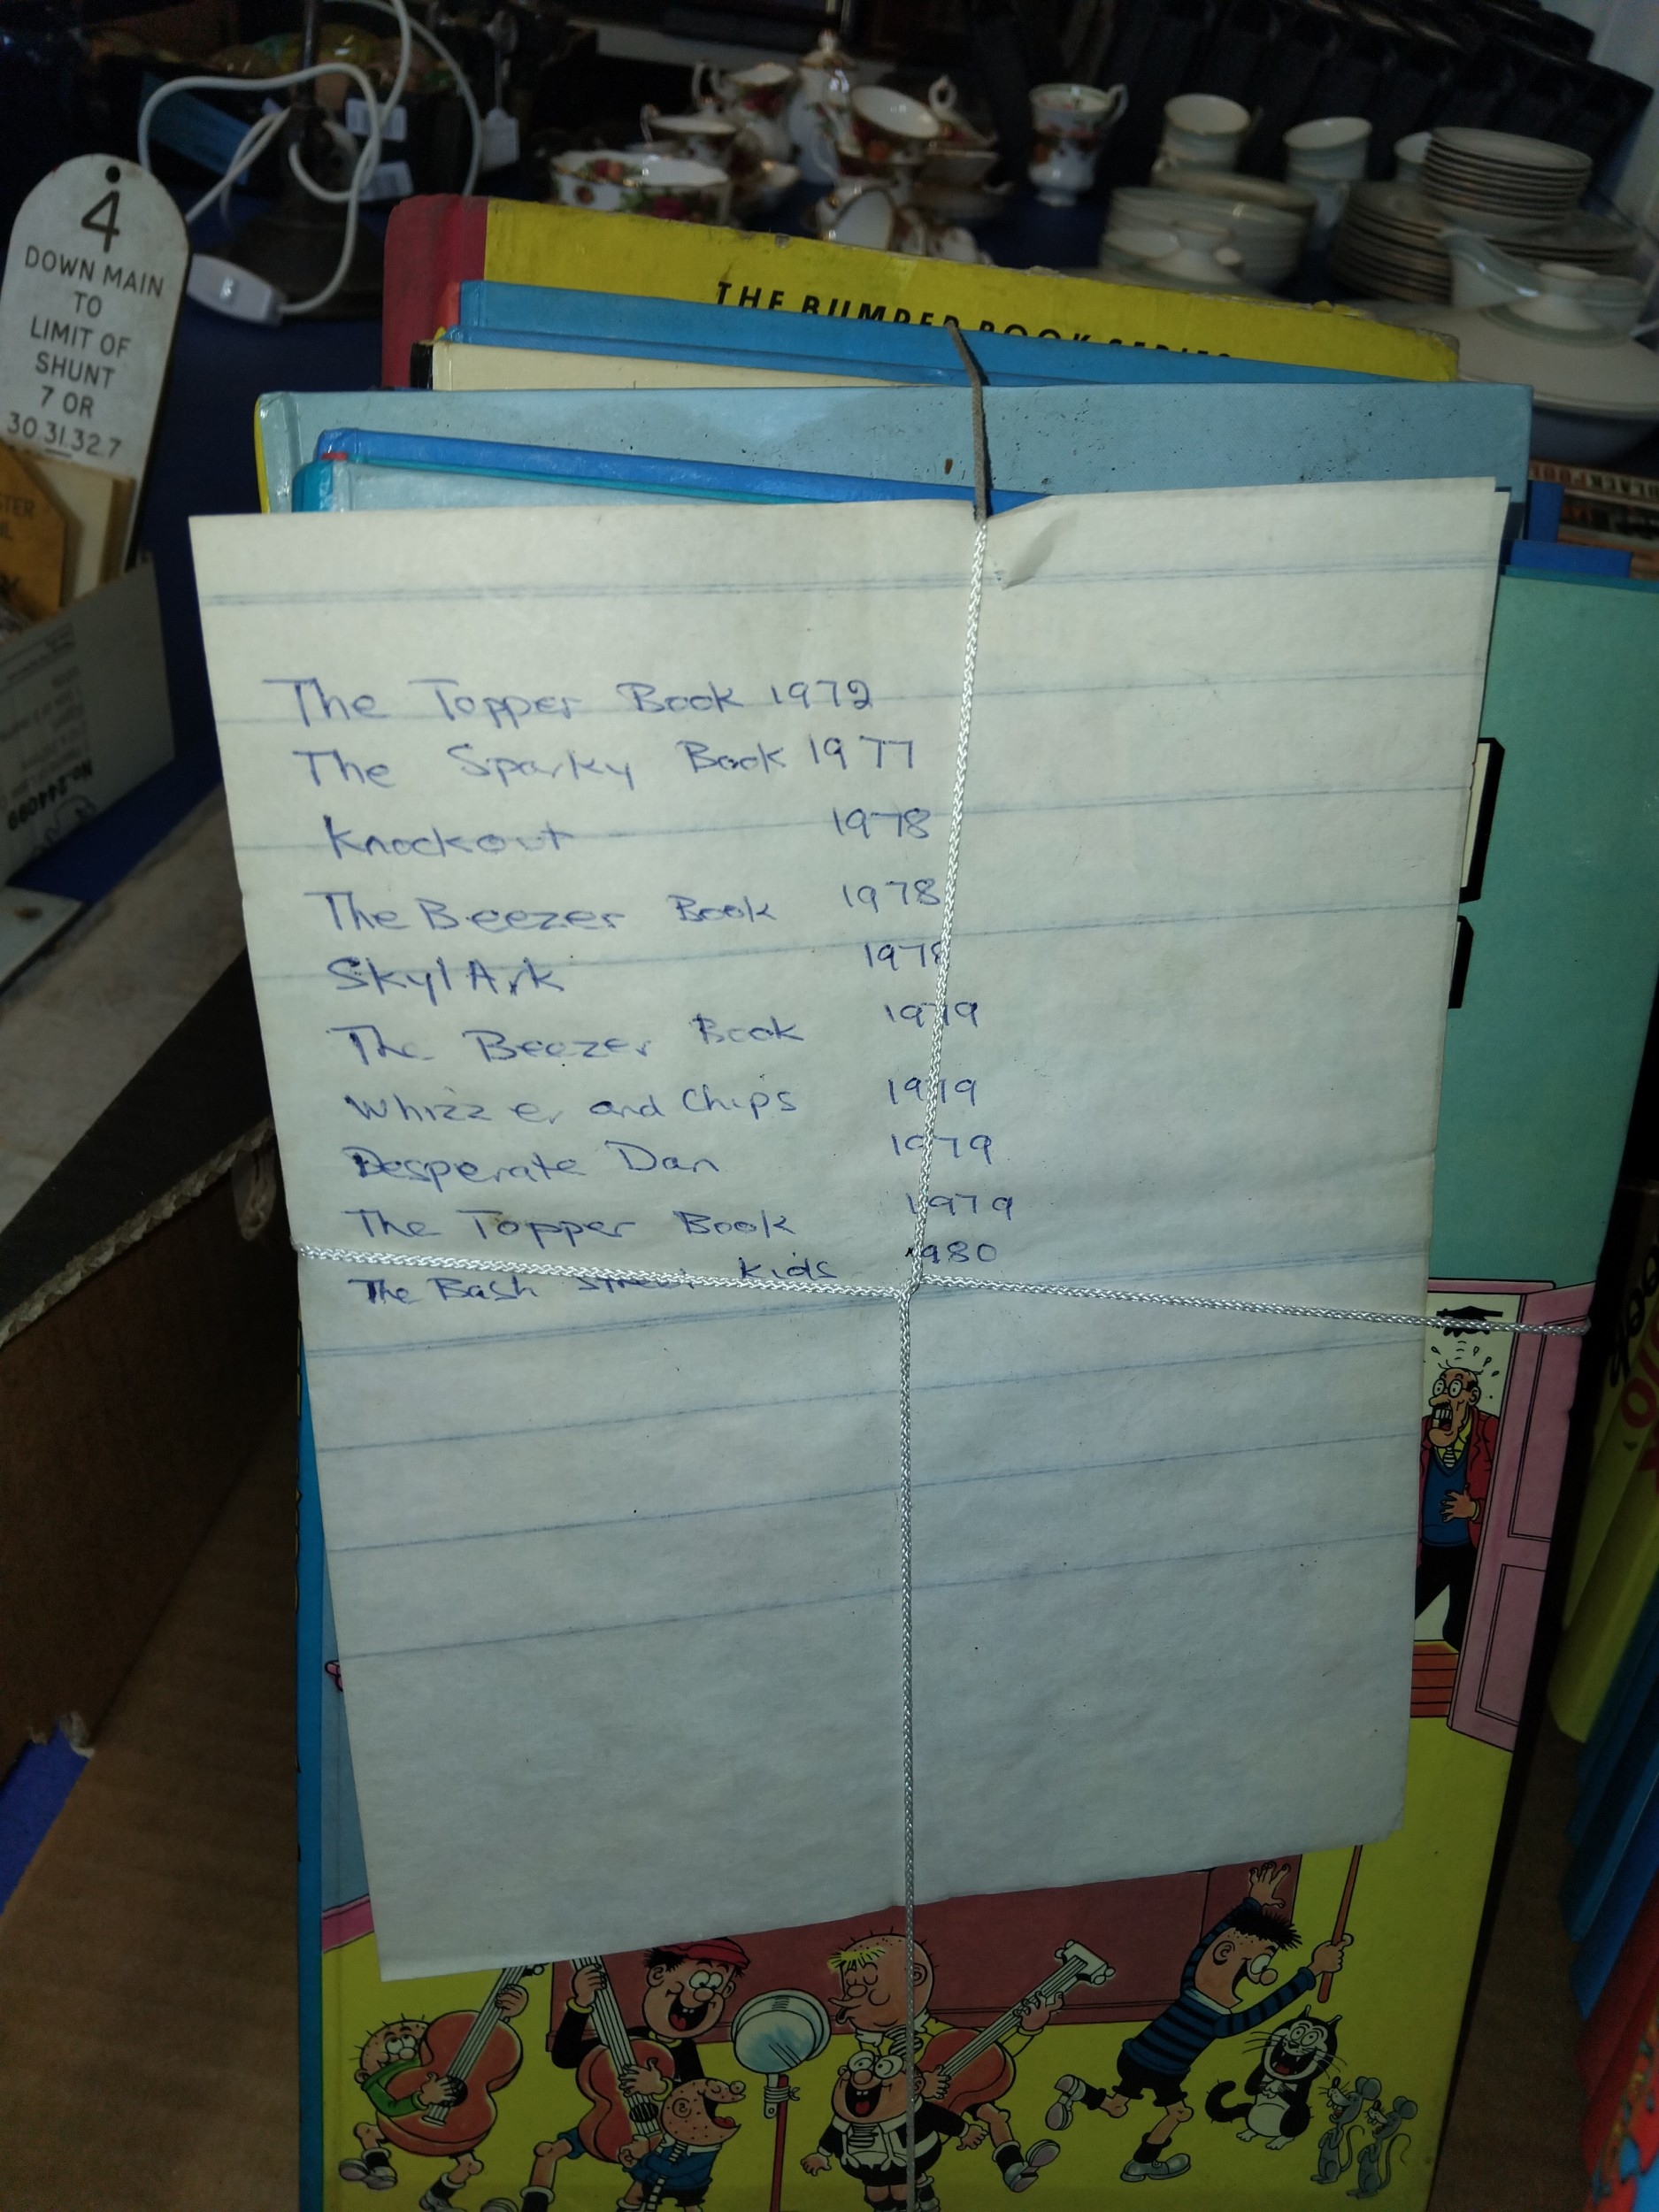 4
DOWN MAIN
TO
LIMIT OF
SHUNT
7 OR
30.31.32.7
THE BUMPER BOOK SERIES
The Topper Book 1972
The Sparky Book 1977
Knockout 1978
The Beezer Book 1978
SkylArk 1978
The Beezer Book 1979
Whizzer and Chips 1979
Desperate Dan 1979
The Topper Book 1979
The Bash Street Kids 1980
No.244099